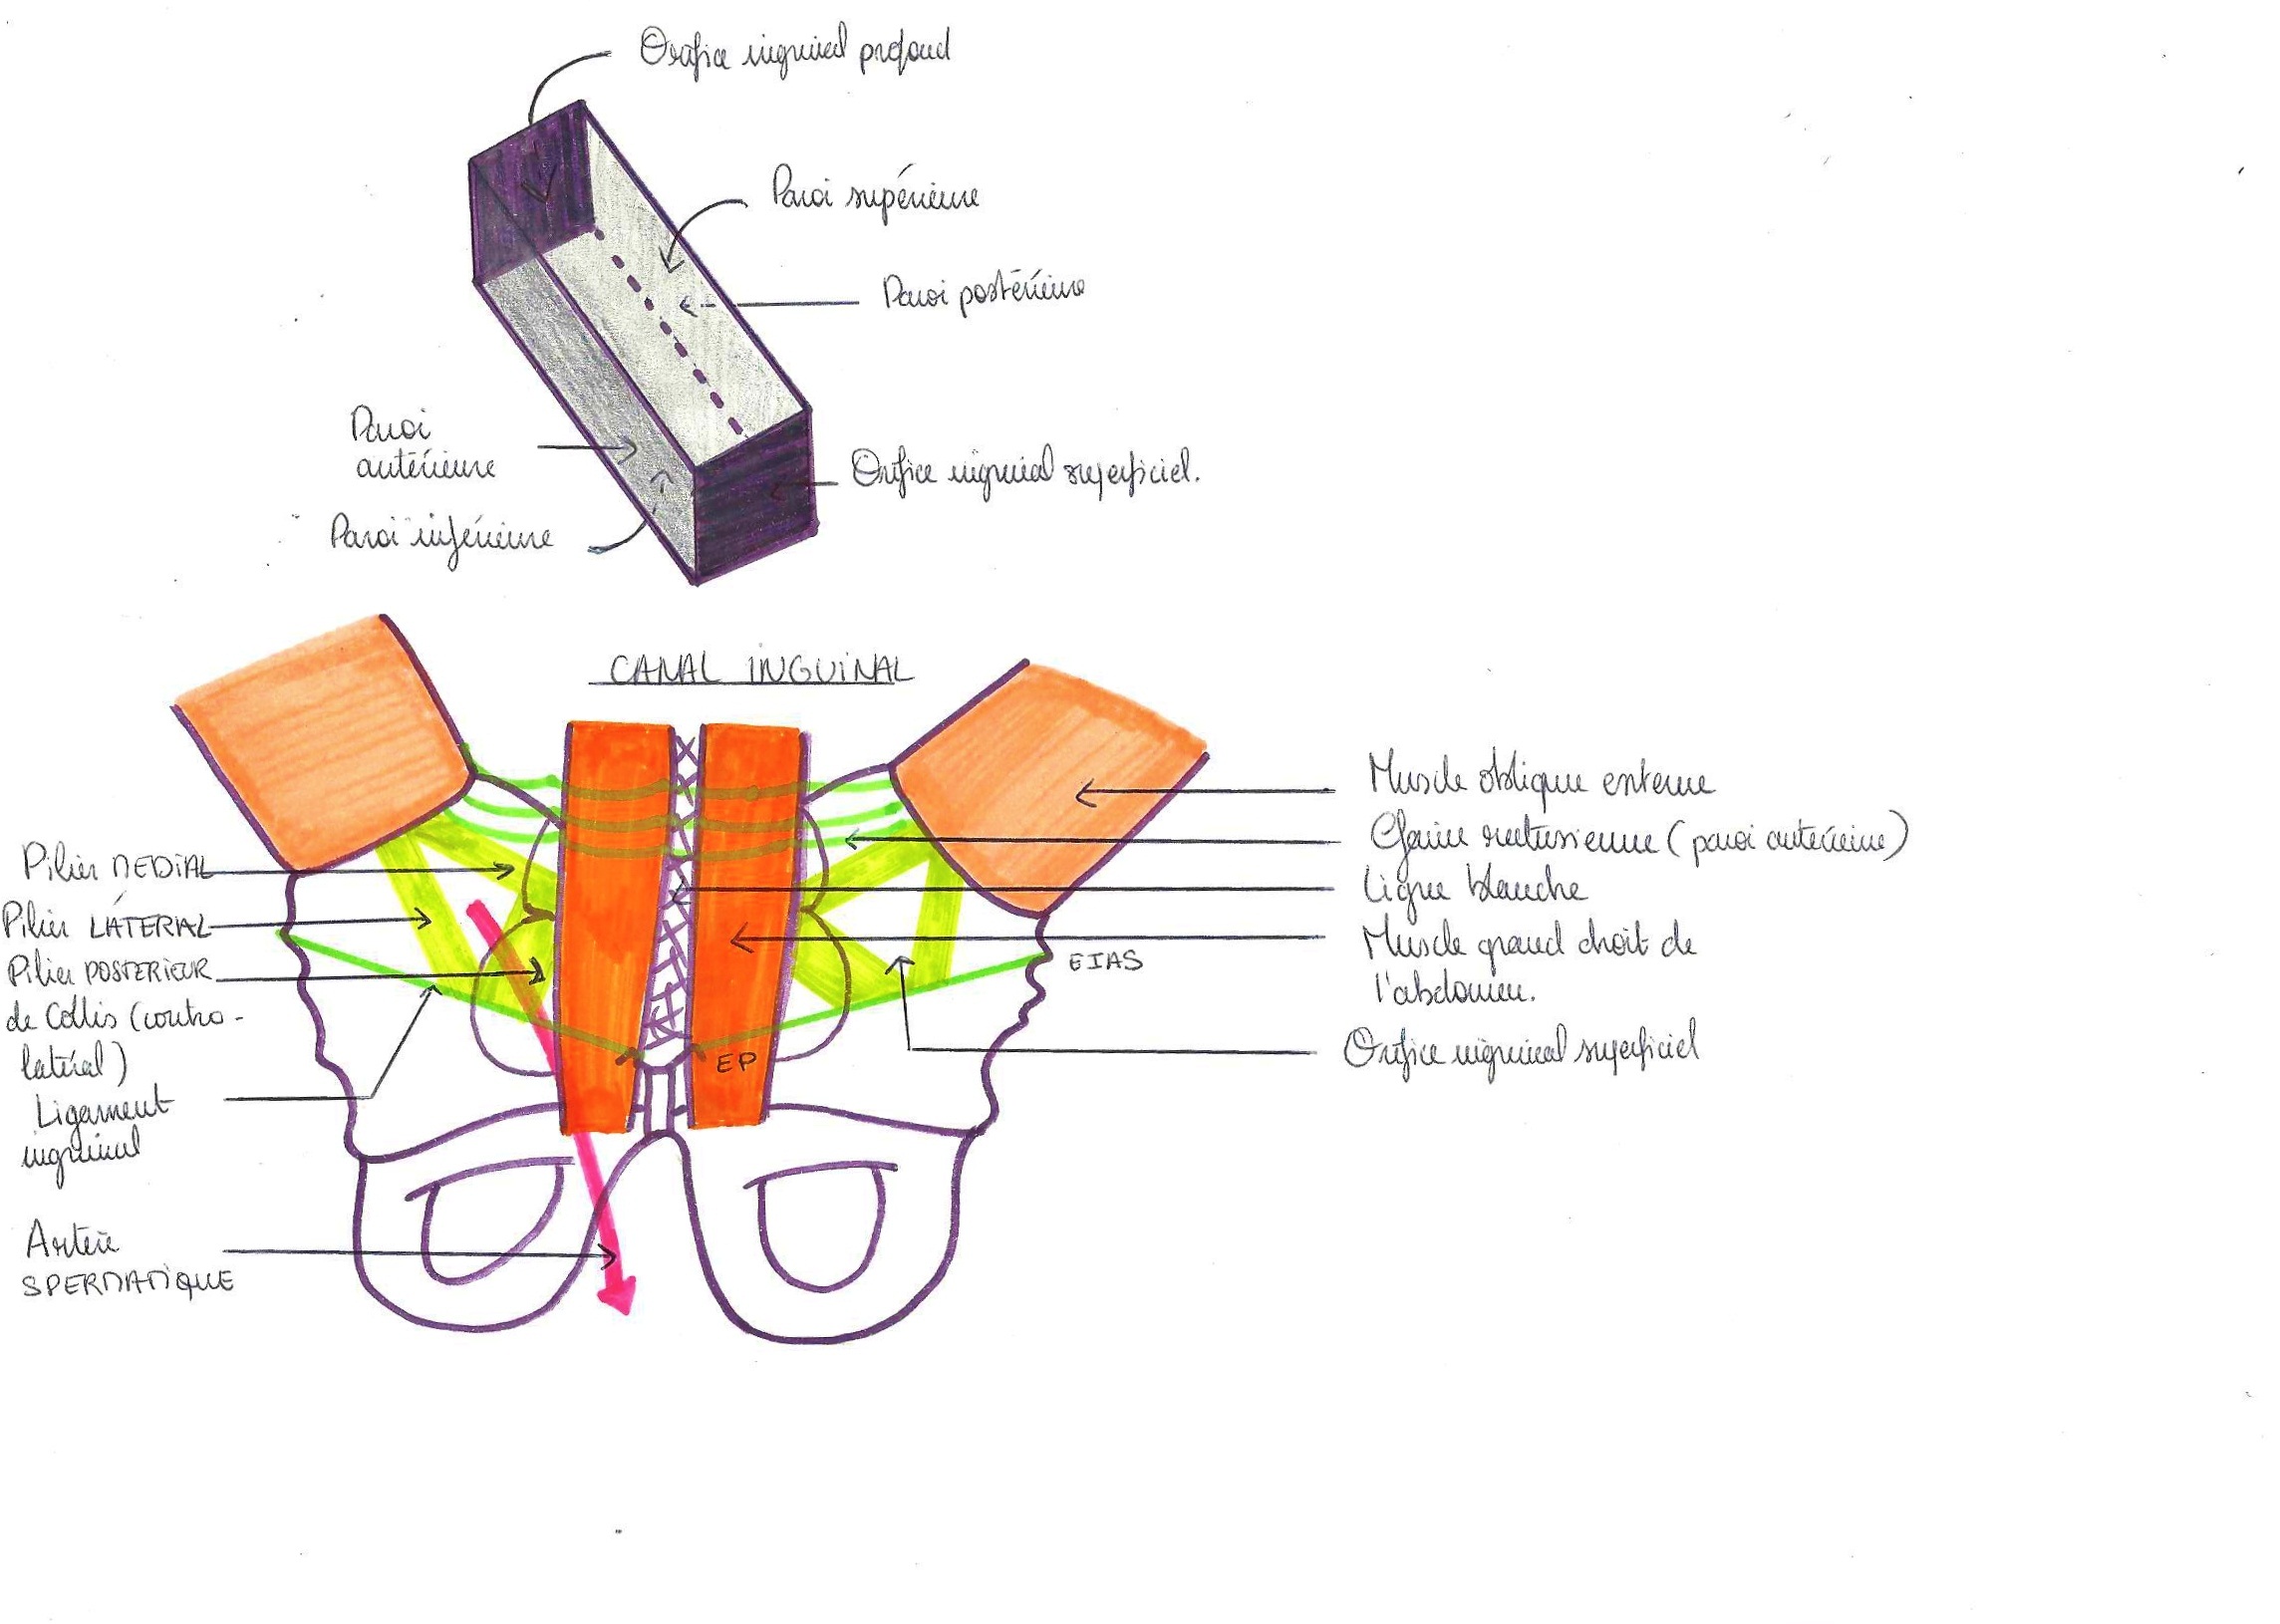 Orifice inguinal profond
Paroi supérieure
Paroi postérieure
Paroi
antérieure
Orifice inguinal superficiel.
Paroi inférieure
CANAL INGUINAL
Muscle oblique externe
Gaine rectusienne (paroi antérieure)
Ligne blanche
Muscle grand droit de
l'abdomen.
EIAS
Orifice inguinal superficiel
EP
Pilier MEDIAL
Pilier LATERAL
Pilier POSTERIEUR
de Collis (contro-
latéral)
Ligament
inguinal
Artère
SPERMATIQUE